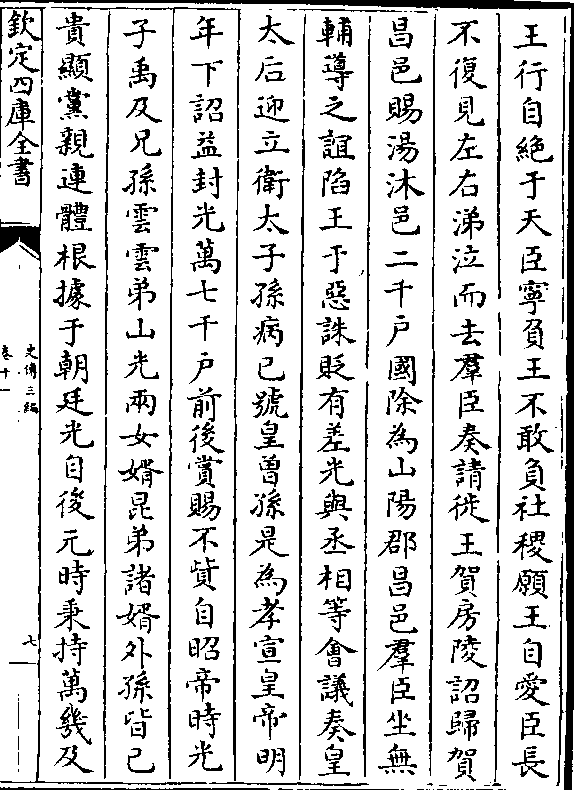 王行自絶于天臣寧負王不敢負社稷願王自愛臣長
不復見左右涕泣而去羣臣奏請徙王賀房陵詔歸賀
昌邑賜湯沐邑二千户國除為山陽郡昌邑羣臣坐無
輔導之誼陷王于惡誅貶有差光與丞相等會議奏皇
太后迎立衛太子孫病已號皇曾孫是為孝宣皇帝明
年下詔益封光萬七千户前後賞賜不貲自昭帝時光
子禹及兄孫雲雲弟山光兩女婿昆弟諸婿外孫皆已
貴顯黨親連體根據于朝廷光自後元時秉持萬幾及
欽定四庫全書
史傳三編
卷十一
七